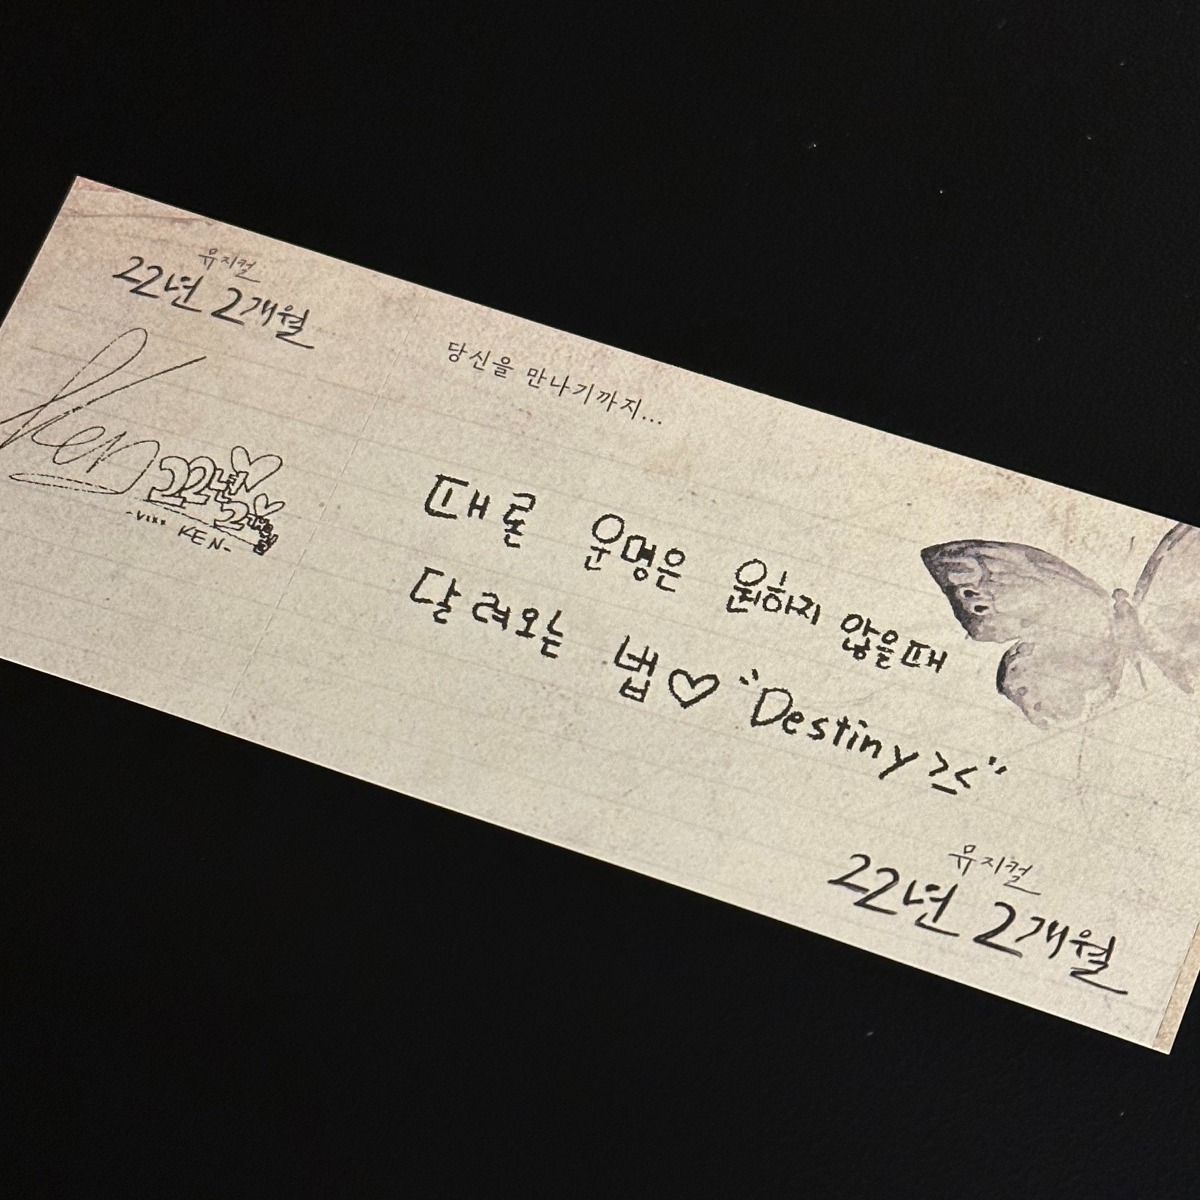 뮤지컬
22년 2개월
Ken
22년
2개월
-VIXX KEN-
당신을 만나기까지...
때론 운명은 원하지 않을때
달려오는 법♡ "Destiny >_<"
뮤지컬
22년 2개월